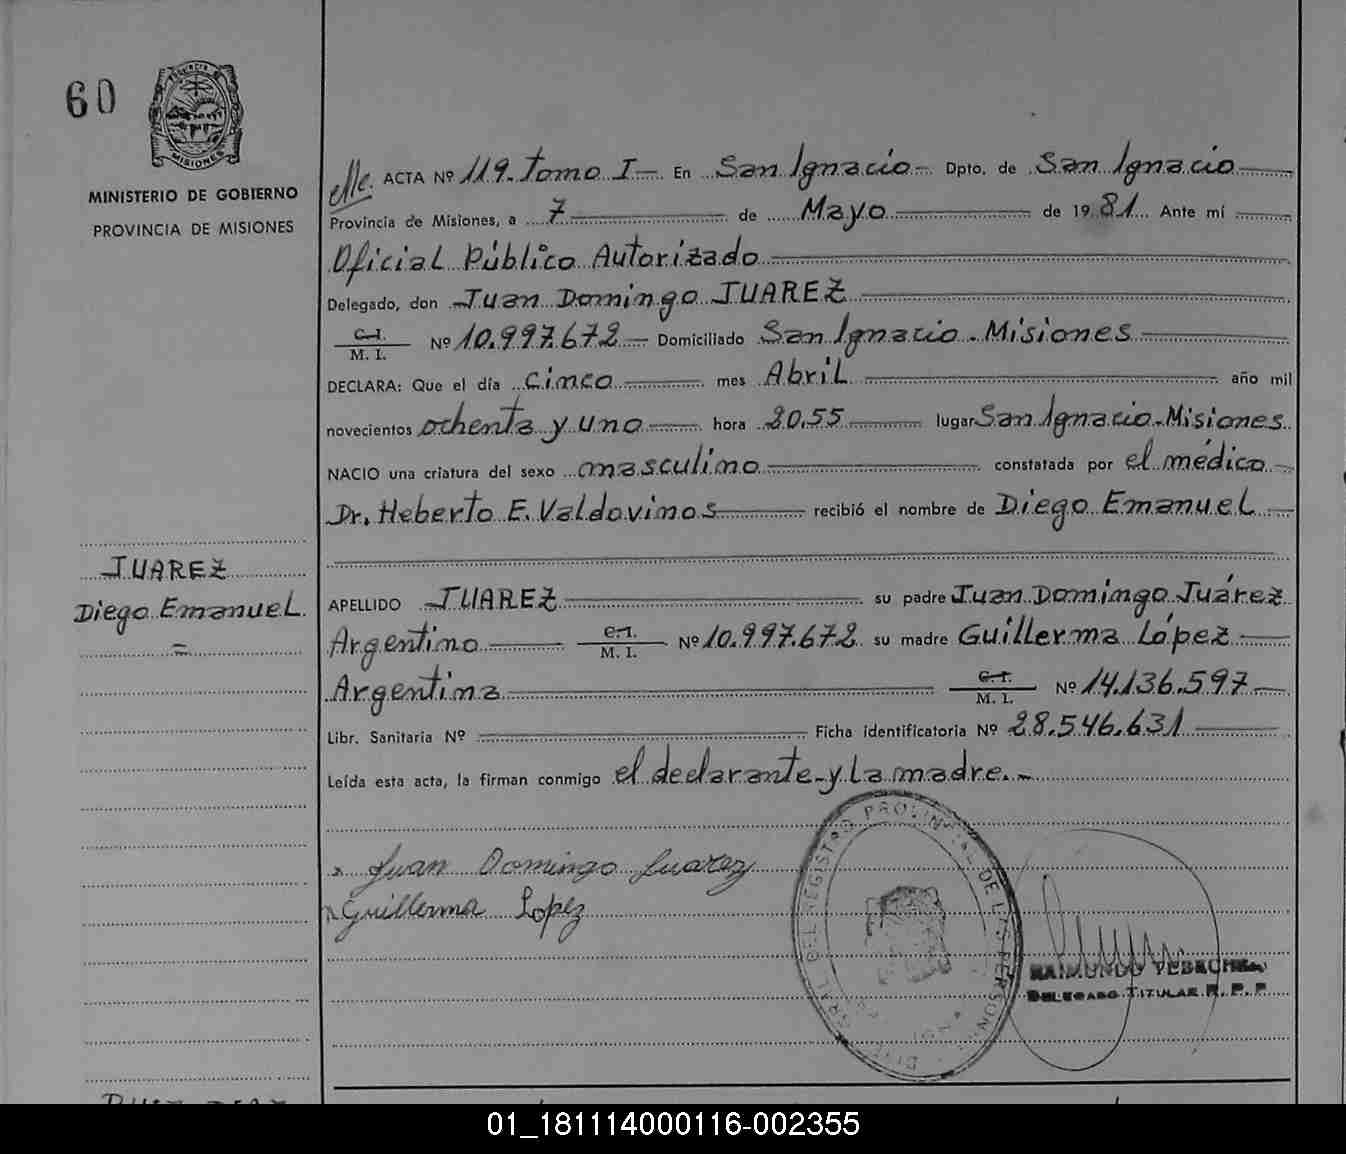 60
PROVINCIA DE
MISIONES
MINISTERIO DE GOBIERNO
PROVINCIA DE MISIONES
JUAREZ
Diego Emanuel.
=
ACTA Nº 119. Tomo I — En San Ignacio - Dpto. de San Ignacio
Provincia de Misiones, a 7 de Mayo de 1981 Ante mí
Oficial Público Autorizado
Delegado, don Juan Domingo JUAREZ
C. I.
M. I. Nº 10.997.672 — Domiciliado San Ignacio - Misiones
DECLARA: Que el día cinco mes Abril año mil
novecientos ochenta y uno hora 20.55 lugar San Ignacio - Misiones
NACIO una criatura del sexo masculino constatada por el médico
Dr. Heberto E. Valdovinos recibió el nombre de Diego Emanuel
APELLIDO JUAREZ su padre Juan Domingo Juárez
Argentino C. I.
M. I. Nº 10.997.672 su madre Guillerma López
Argentina C. I.
M. I. Nº 14.136.597
Libr. Sanitaria Nº Ficha identificatoria Nº 28.546.631
Leída esta acta, la firman conmigo el declarante y la madre. -
x Juan Domingo Juarez
Guillerma Lopez
REGISTRO PROVINCIAL DE LAS PERSON
RAIMUNDO
DELEGADO TITULAR R. P. P.
01_181114000116-002355